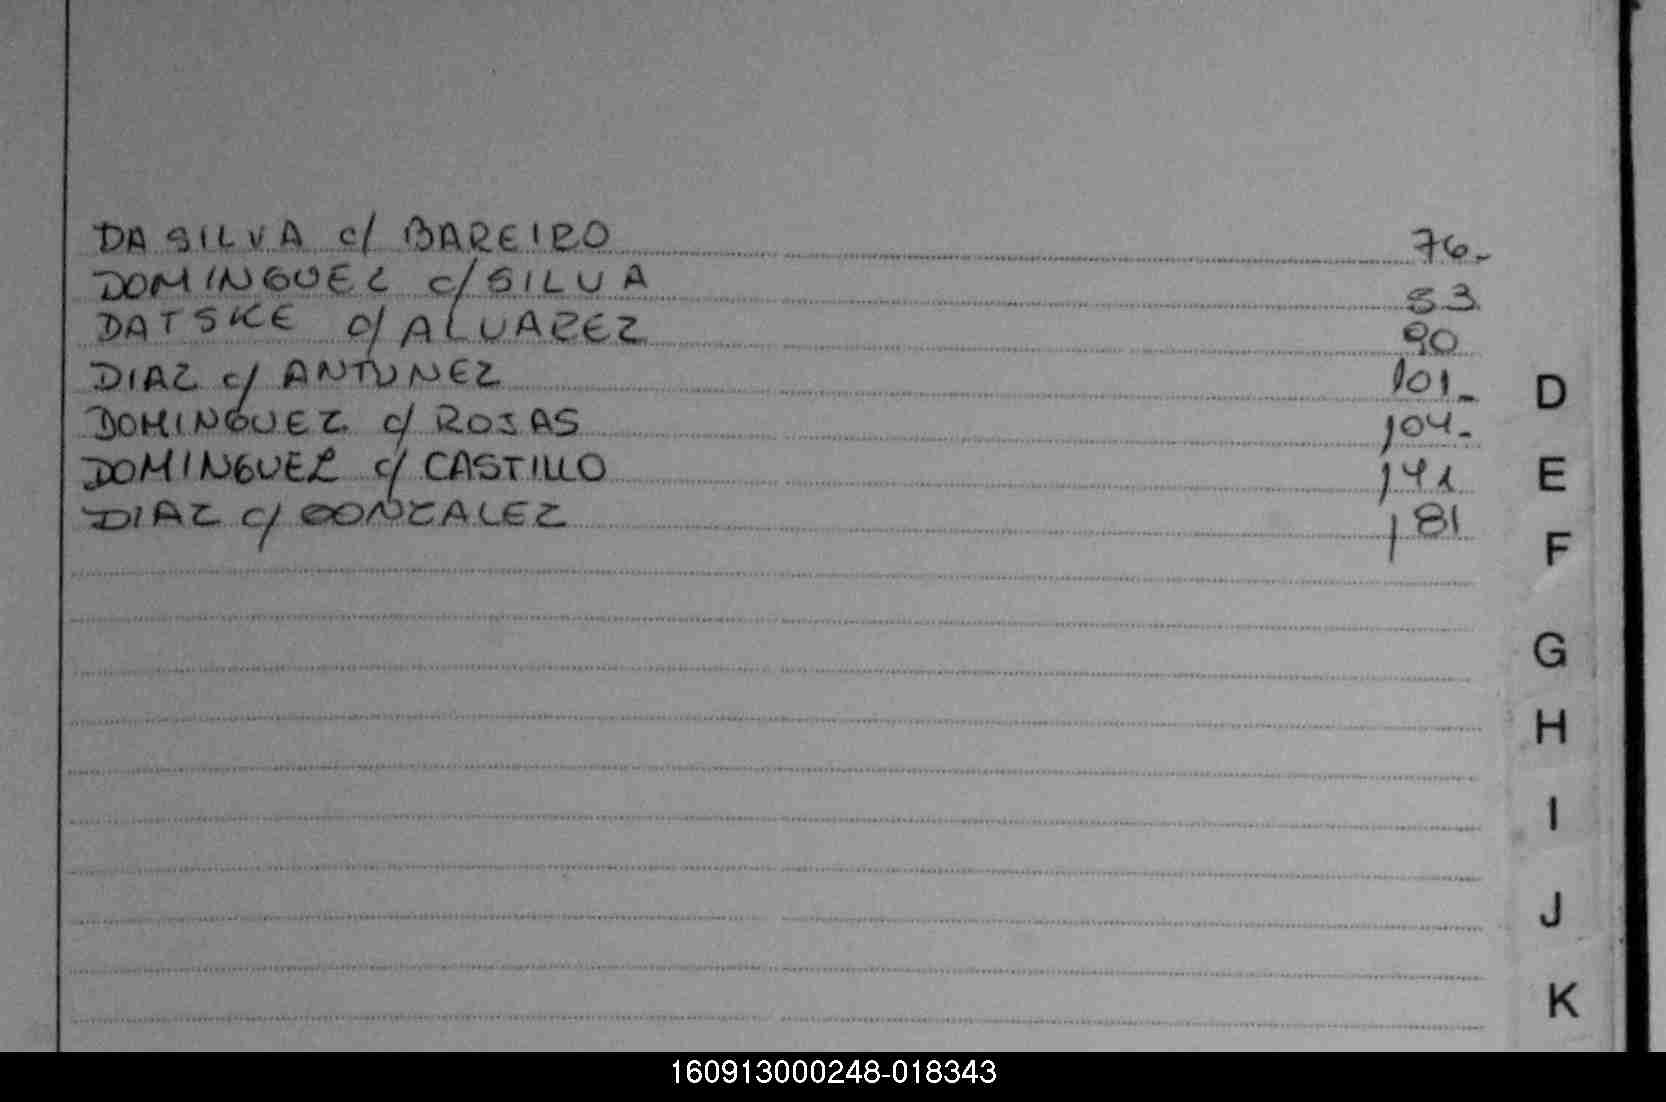 DA SILVA c/ BAREIRO 76.-
DOMINGUEZ c/ SILVA 83
DATSKE c/ ALVAREZ 90
DIAZ c/ ANTUNEZ 101.-
DOMINGUEZ c/ ROJAS 104.-
DOMINGUEZ c/ CASTILLO 141
DIAZ c/ GONZALEZ 181
D
E
F
G
H
I
J
K
160913000248-018343